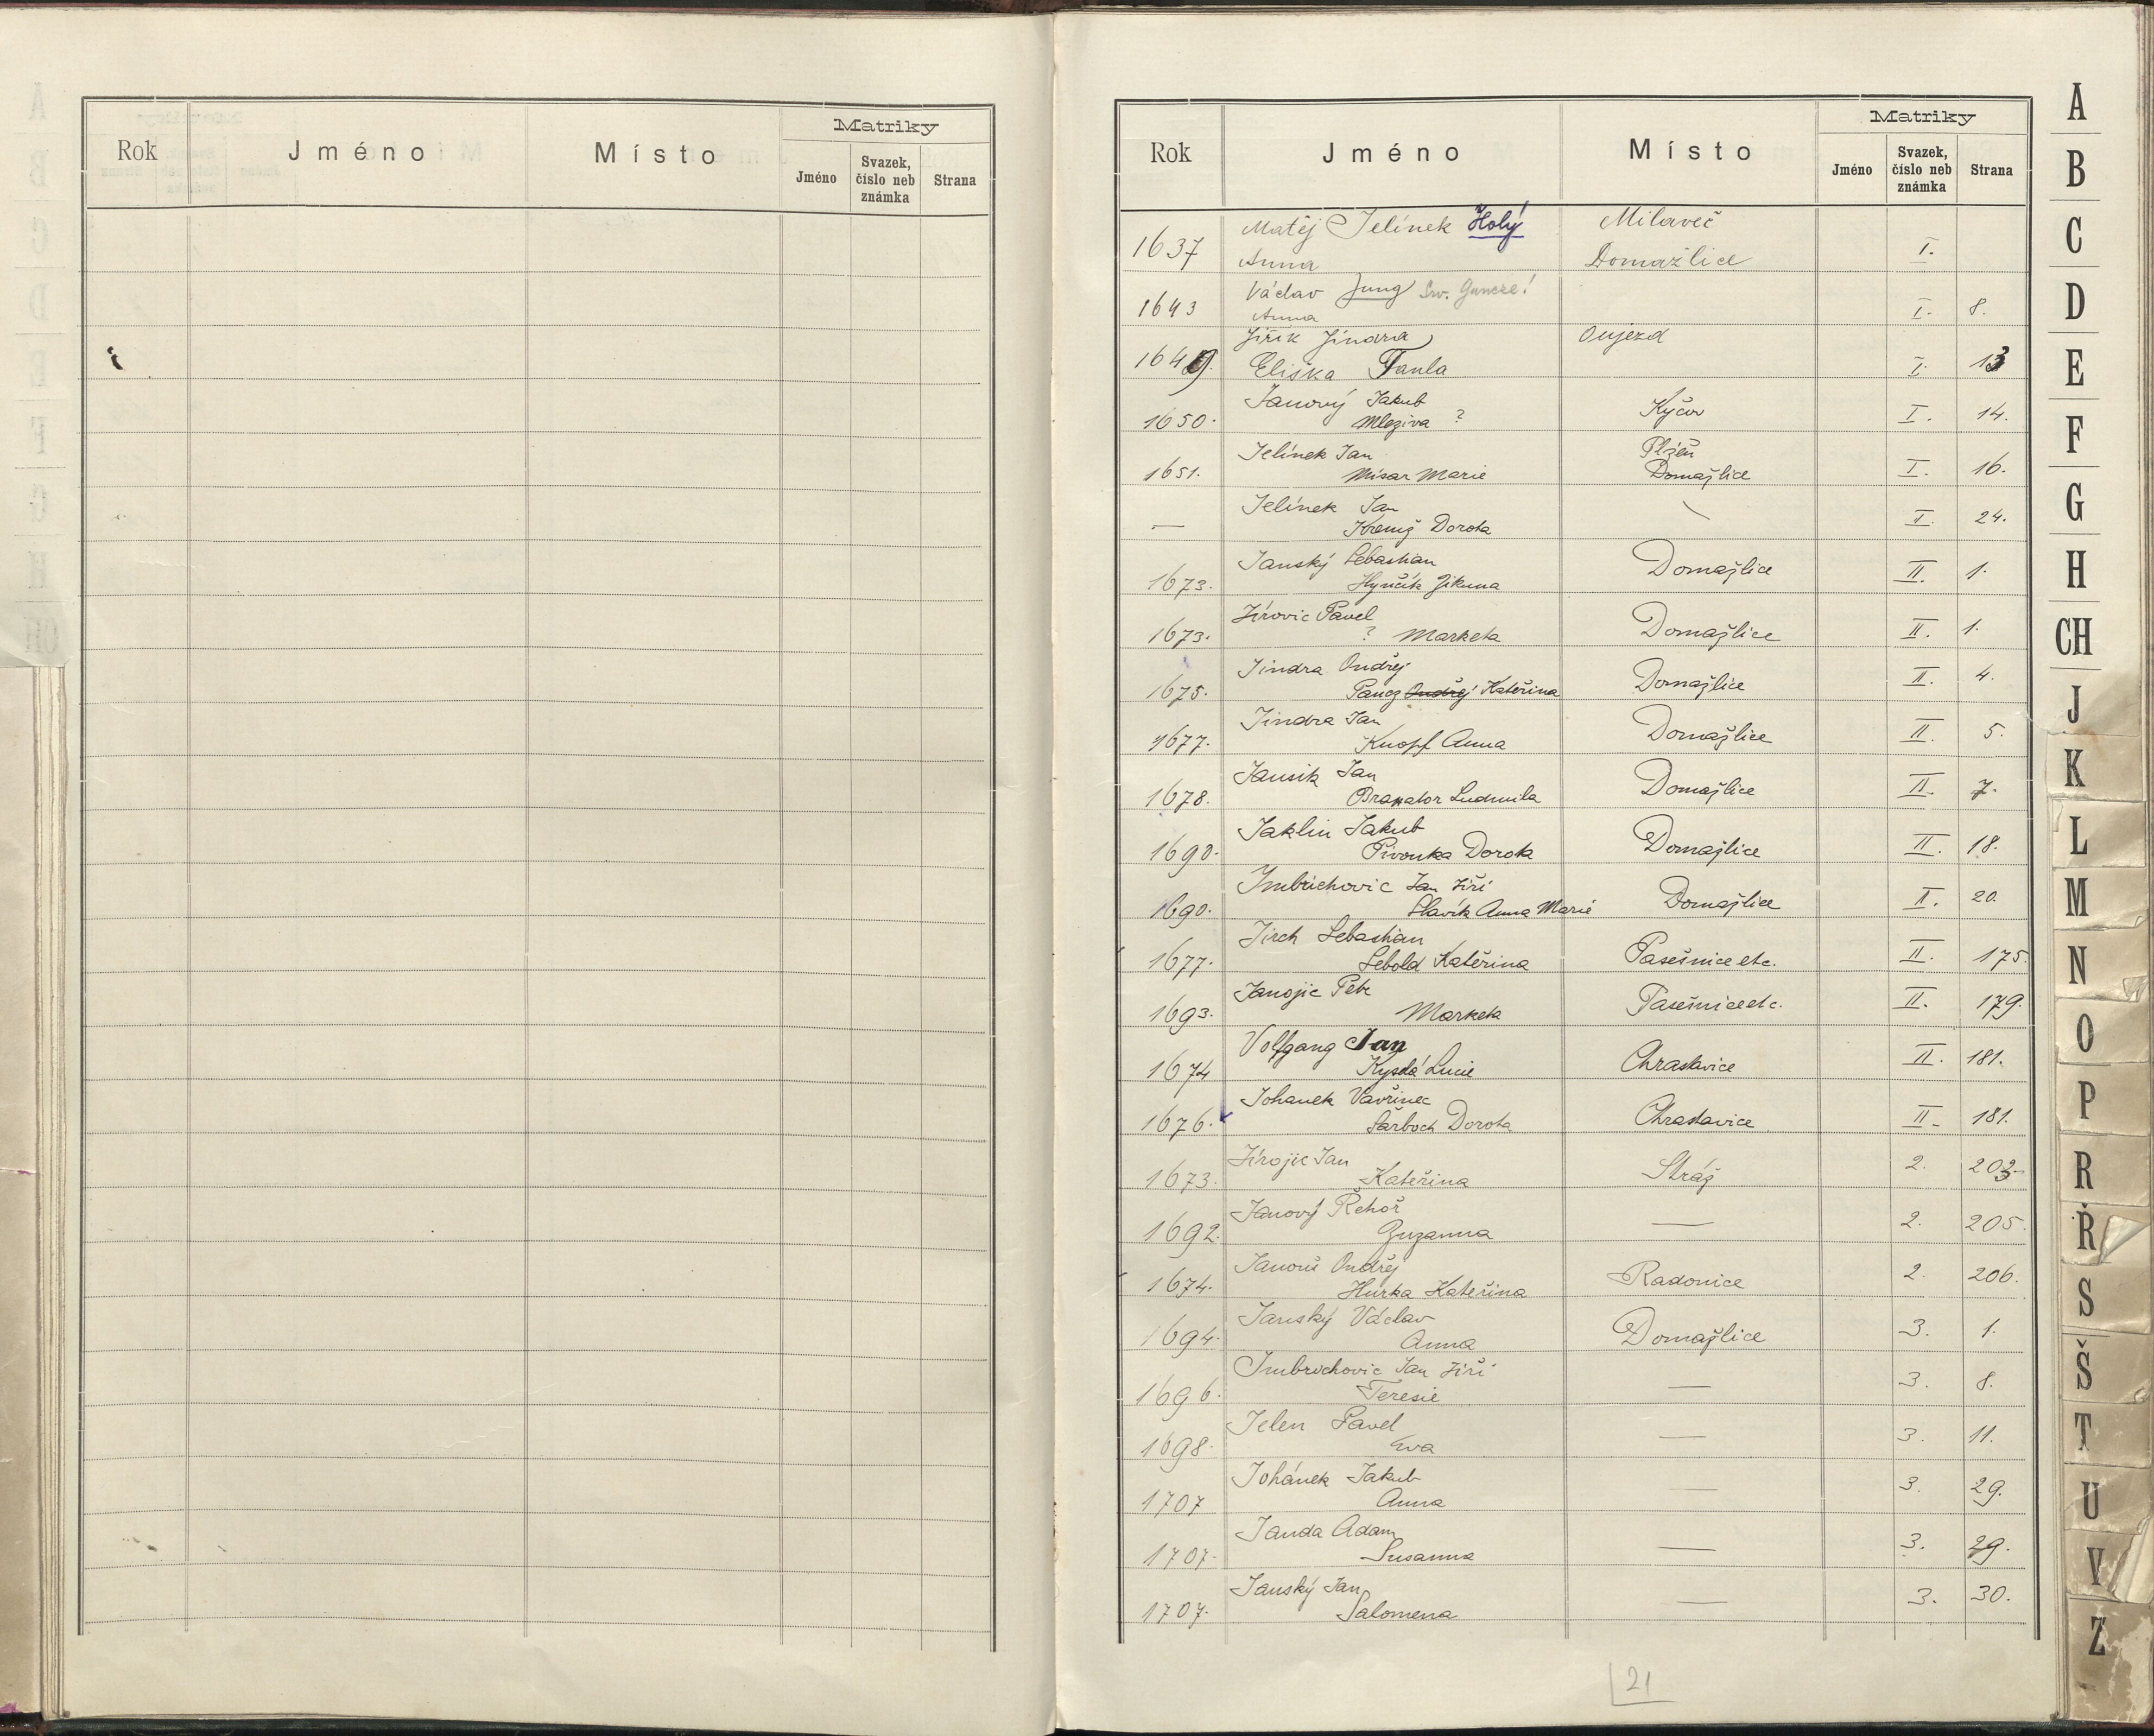 Rok Jméno Místo Matriky
Jméno Svazek, číslo neb známka Strana
Rok Jméno Místo Matriky
Jméno Svazek, číslo neb známka Strana
Matěj Jelínek Holý Milaveč
1637 Anna Domažlice I.
Václav Jung
1643 Anna I. 8.
Jiřík Jindra Oujezd
1649. Eliška Faula I. 13
Janový Jakub
1650. Mleziva ? Kyčov I. 14.
Jelínek Jan Plzeň
1651. Misar Marie Domažlice I. 16.
Jelínek Jan
— Kremž Dorota I. 24.
Janský Sebastian
1673. Hynčík Domažlice II. 1.
Jírovic Pavel
1673. ? Marketa Domažlice II. 1.
Jindra Ondřej
1675. Pancz Ondřej Kateřina Domažlice II. 4.
Jindra Jan
1677. Knopf Anna Domažlice II. 5.
Jansik Jan
1678. Ludmila Domažlice II. 7.
Jaklin Jakub
1690. Pivonka Dorota Domažlice II. 18.
Imbrichovic Jan Jiří
1690. Slavík Anna Marie Domažlice II. 20.
Jirch Sebastian
1677. Sebold Kateřina Pasešnice etc. II. 175.
Janojic Petr
1693. Marketa Pasešnice etc. II. 179.
Volfgang Jan
1674 Lucie Chrastavice II. 181.
Johanek Vavřinec
1676. Šarboch Dorota Chrastavice II. 181.
Jírojic Jan
1673. Kateřina Stráž 2. 203.
Janový Řehoř
1692. Zuzanna — 2. 205.
Janouš Ondřej
1674. Hurka Kateřina Radonice 2. 206.
Janský Václav
1694. Anna Domažlice 3. 1.
Imbrichovic Jan Jiří
1696. Teresie — 3. 8.
Jelen Pavel
1698. Eva — 3. 11.
Johánek Jakub
1707 Anna — 3. 29.
Janda Adam
1707. Susanna — 3. 29.
Janský Jan
1707. Salomena — 3. 30.
21
A
B
C
D
E
F
G
H
CH
J
K
L
M
N
O
P
R
Ř
S
Š
T
U
V
Z